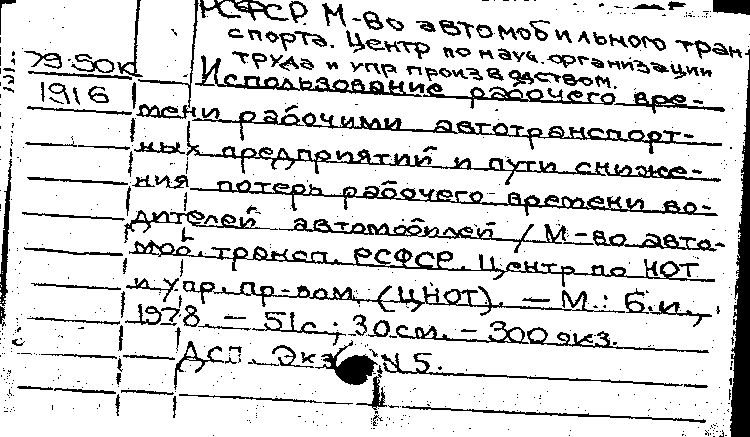 РСФСР. М-во автомобильного тран-
спорта. Центр по науч. организации
труда и упр производством.
79-50к
Использование рабочего вре-
1916
мени рабочими автотранспорт-
ных предприятий и пути сниже-
ния потерь рабочего времени во-
дителей автомобилей / М-во авто-
моб. трансп. РСФСР. Центр по НОТ
и упр. пр-вом (ЦНОТ). — М.: Б.и.,
1978. — 51с.; 30см. — 300 экз.
Дсп. Экз. N 5.